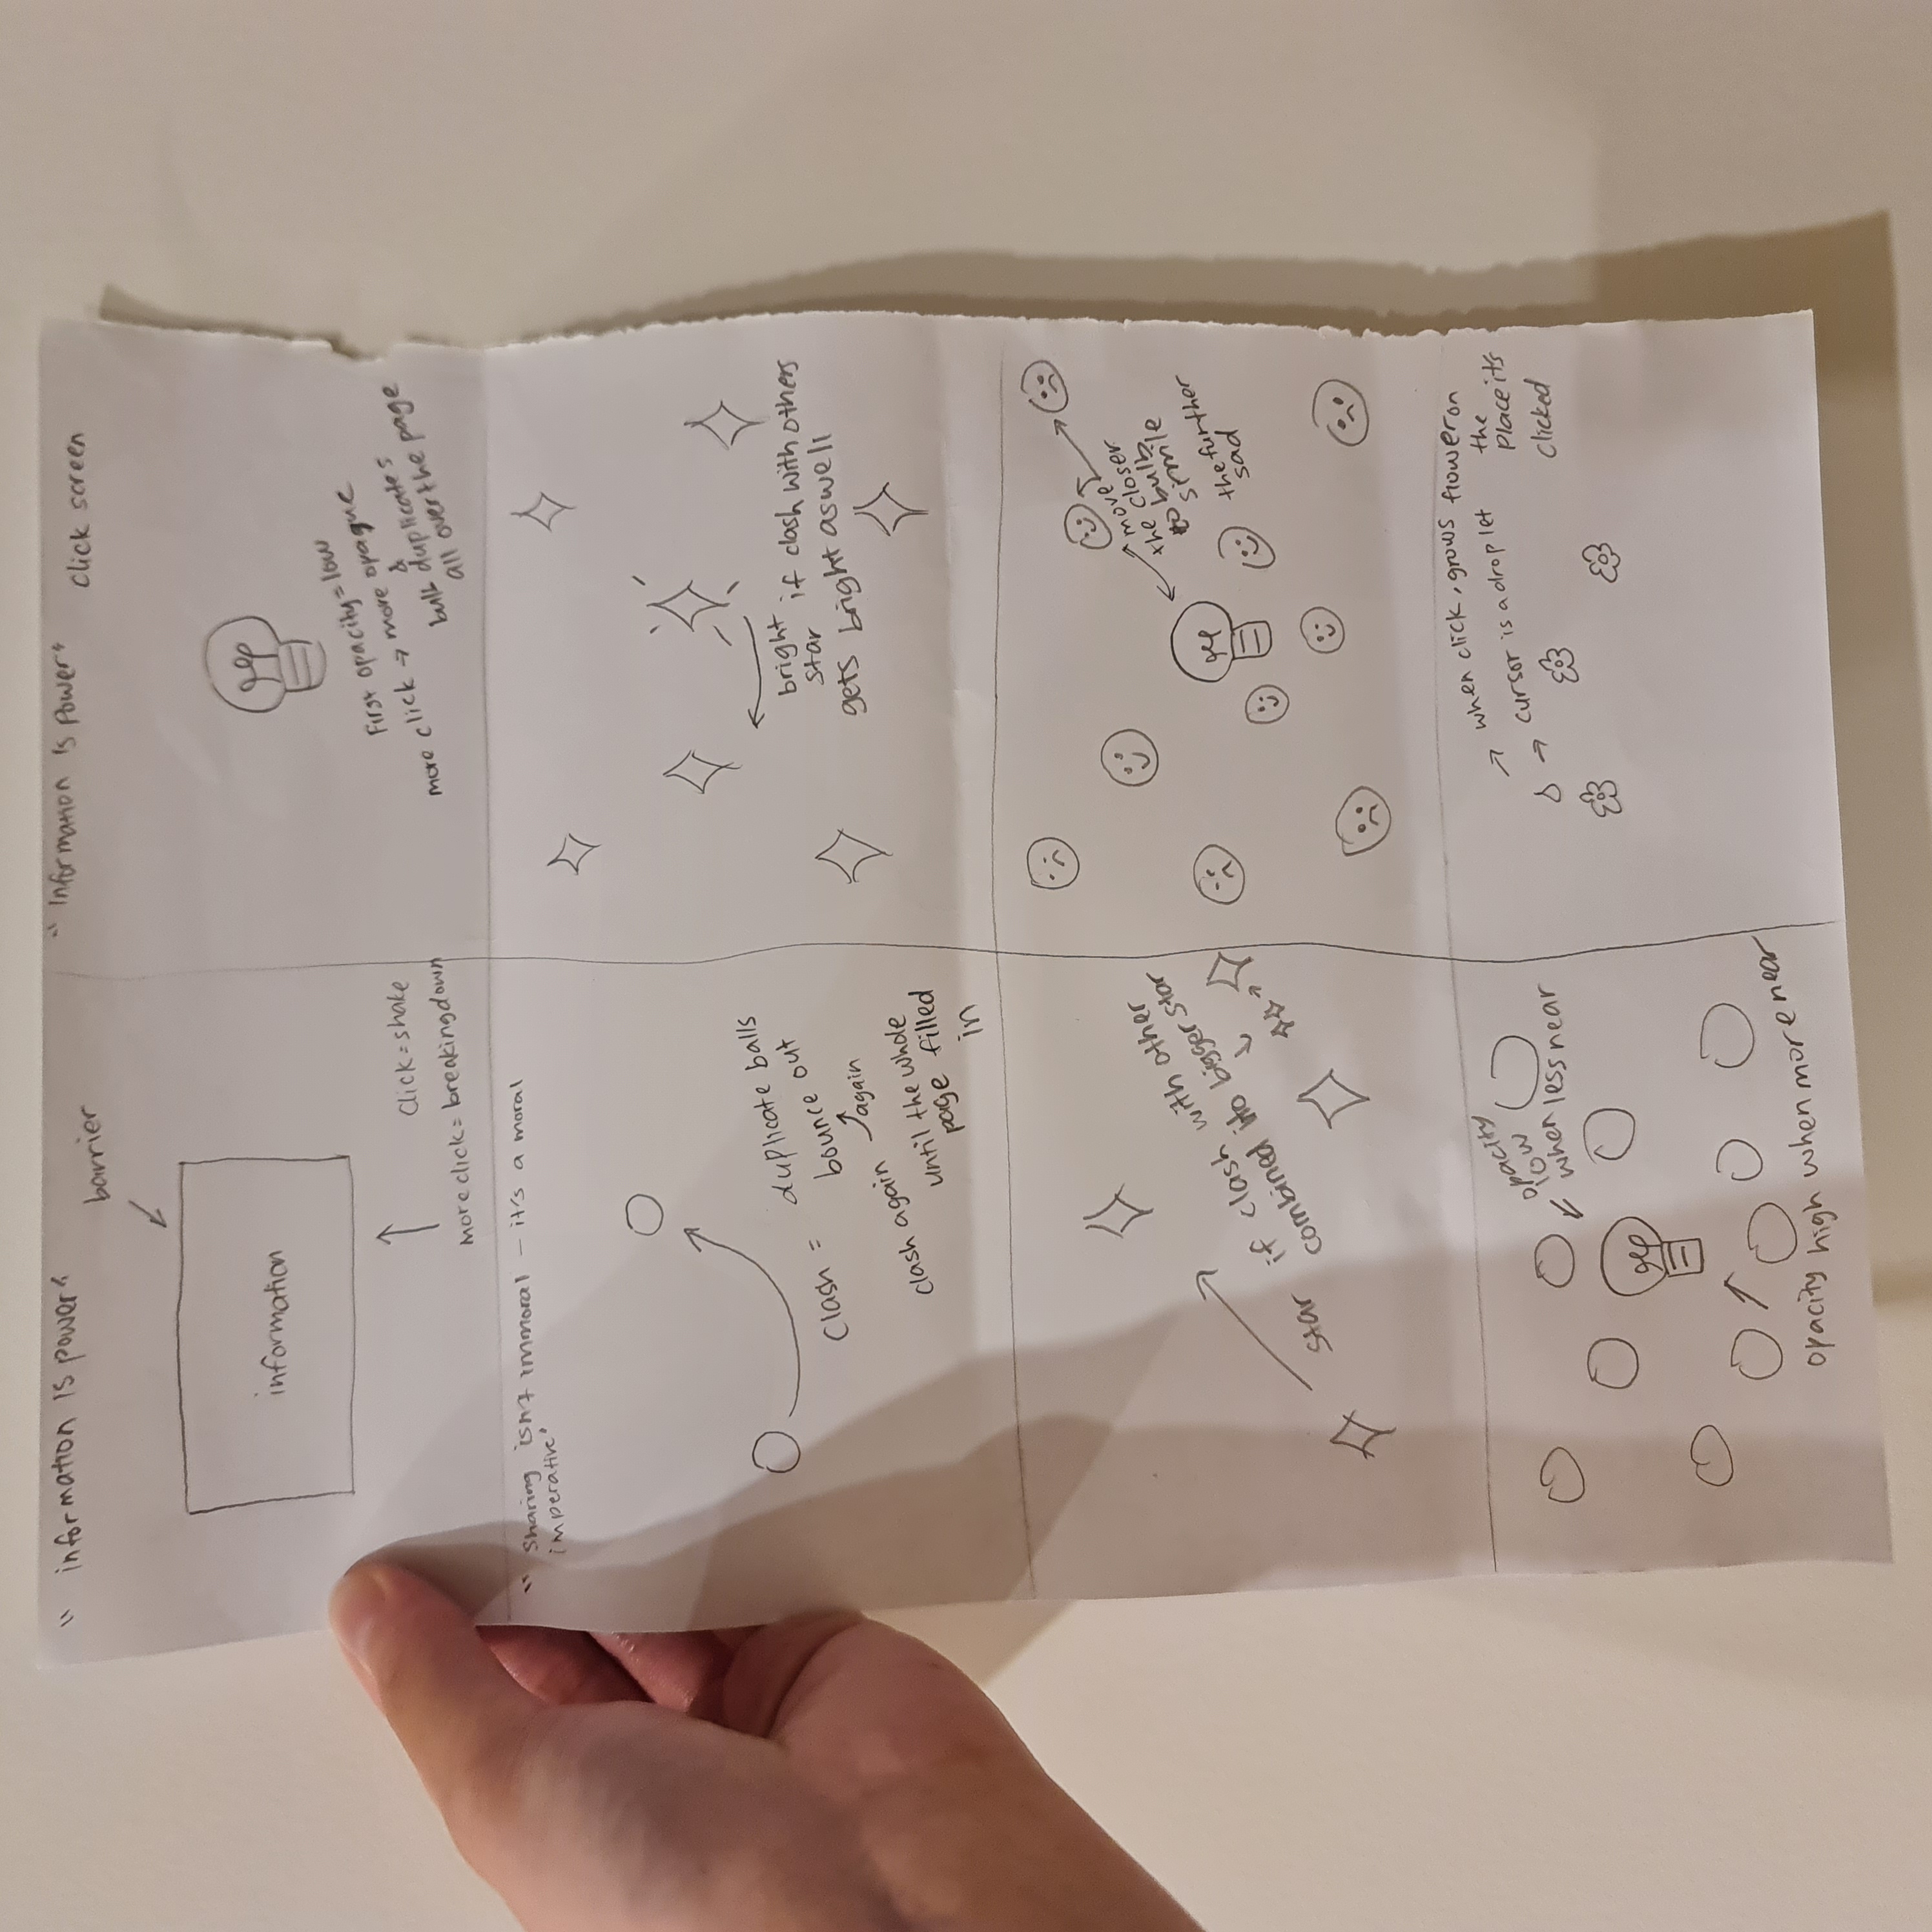 " information is power"
barrier
information
Click = shake
More click = breaking down
" Information is power"
click screen
First opacity = low
more click → more opaque
&
bulb duplicates
all over the page
" Sharing isn't immoral – it's a moral
imperative"
Clash = duplicate balls
bounce out
clash again again
until the whole
page filled
in
bright
star if clash with others
gets bright aswell
star if clash with other
combined into bigger star
move
the closer
to bulb
smile
the further
sad
opacity
low
when less near
opacity high when more near
when click, grows flower on
the
place it's
clicked
cursor is a droplet